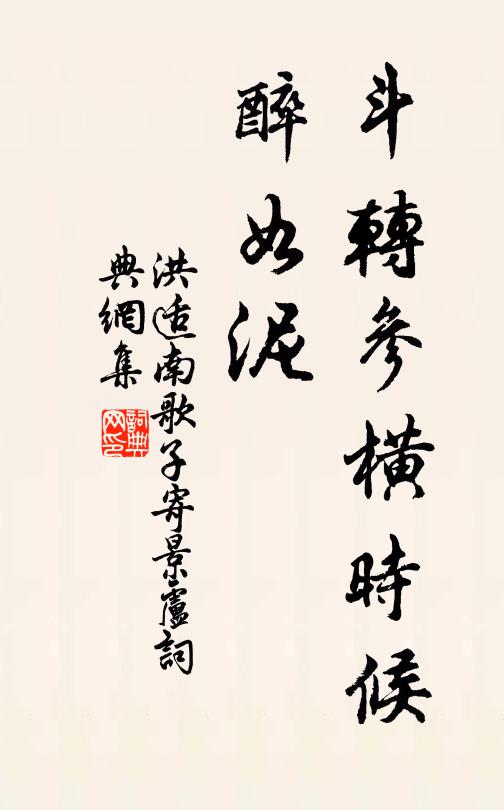 斗轉參橫時候
醉如泥
洪适南歌子寄景廬詞
典網集
詞典
网印